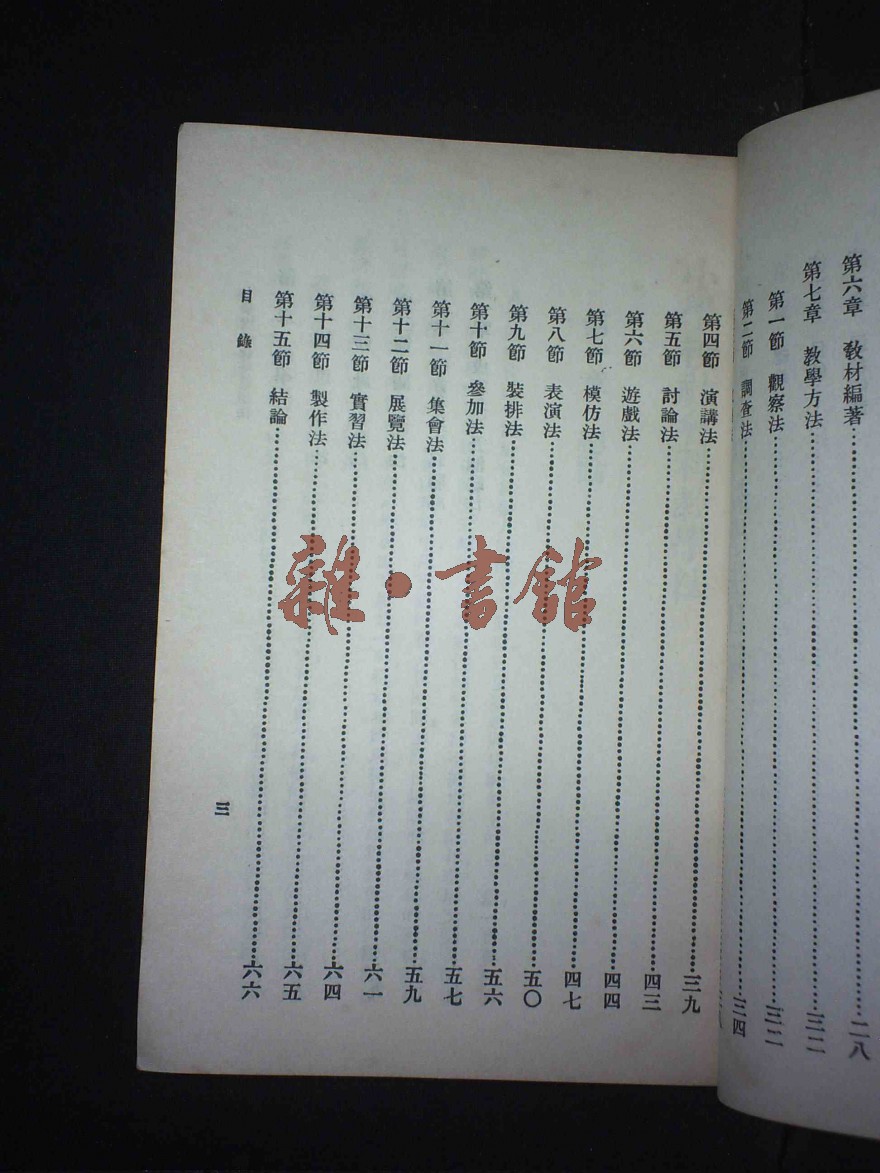 第六章　教材編著……二八
第七章　教學方法……三二
第一節　觀察法……三二
第二節　調查法……三四
第四節　演講法……三九
第五節　討論法……四三
第六節　遊戲法……四四
第七節　模仿法……四七
第八節　表演法……五〇
第九節　裝排法……五六
第十節　參加法……五七
第十一節　集會法……五九
第十二節　展覽法……六一
第十三節　實習法……六四
第十四節　製作法……六五
第十五節　結論……六六
目錄
三
雜·書館